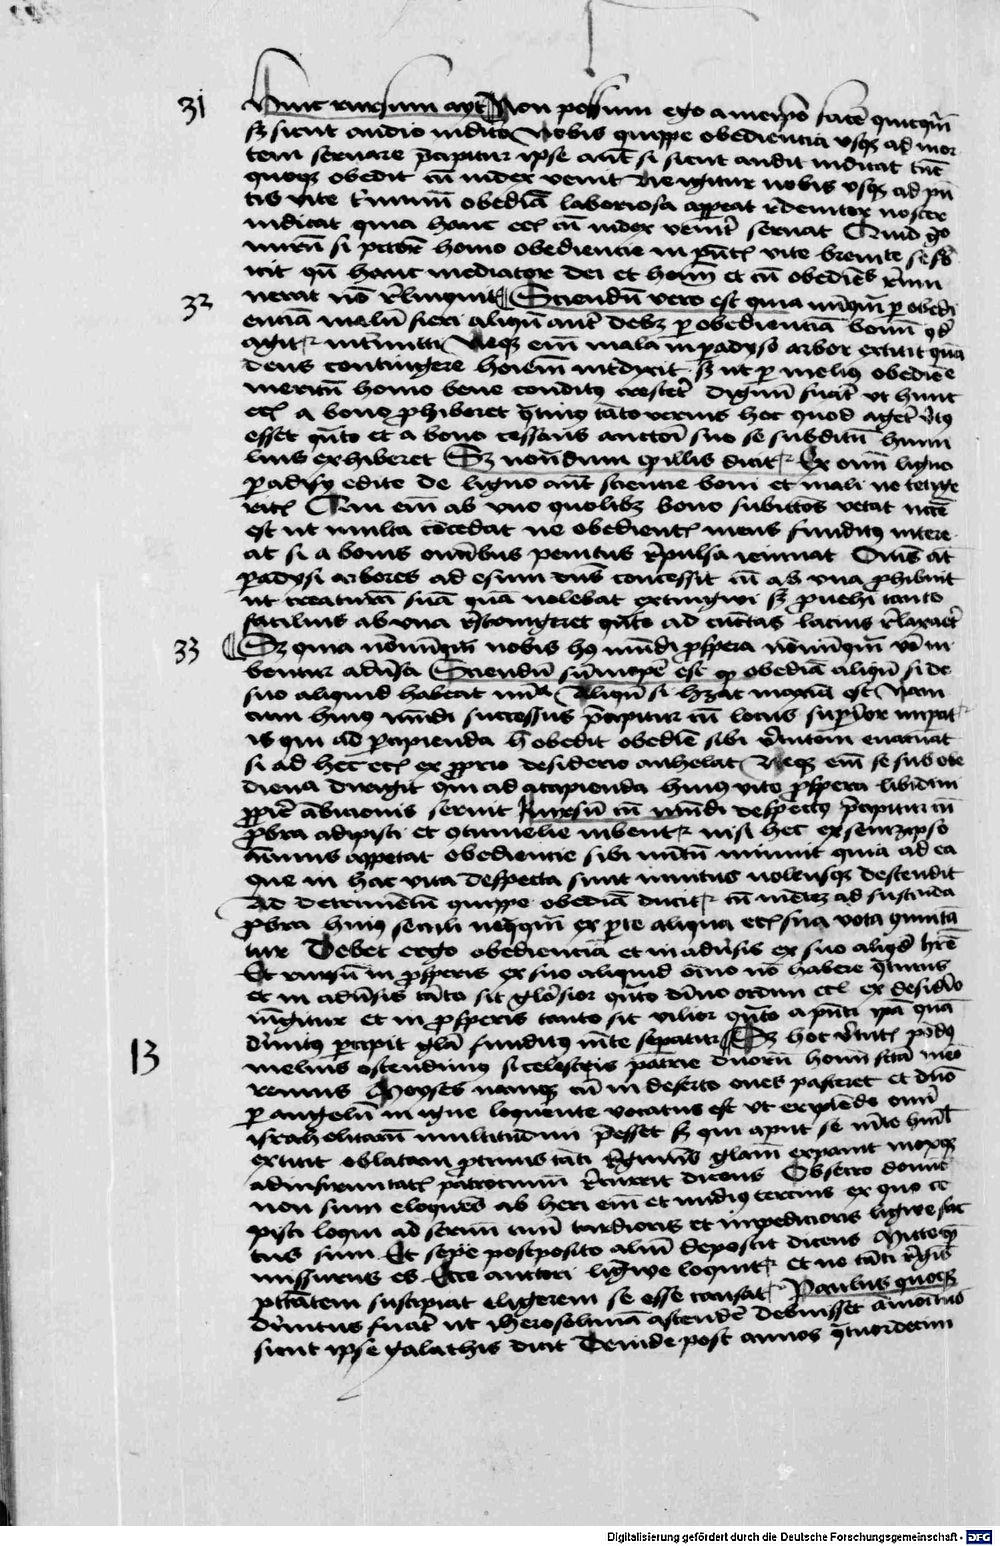 31 Hinc rursum ayt Non possum ego a meipō facē quicq̄m
sꝫ sicut audio iudico Nobis quippe obediencia vsqꝫ ad mor
tem seruare p̄cipitur ipse aut̄ si sicut audit iudicat tūc
quoqꝫ obedit cū iudex venit Ne igitur nobis vsqꝫ ad p̄n
tis vite t̓minū obediā laboriosa appeat rēdemtor noster
indicat quia hanc ecī cū iudex veniet̄ seruat Quid ḡo
mirū si pctōr homo obediencie in p̄nti vite breuitate se sb̄
icit qn̄ hanc mediator dei et hoīm et cū obediētes remu
32 nerat nō relinquit Sciendū vero est quia nūq̄m p obedi
enciā malū fieri aliqn̄ aut̄ debꝫ p obedienciā bonū qd̄
agitur intmitti Neqꝫ em̄ mala in paradyso arbor extitit quā
deus contingere hoīem int̓dixit sꝫ ut p melius obediēe
meritū homo bene conditus cresceret dignū fuit̄ ut hunc
ecī a bono phiberet q̄tinus tāto verius hoc quod ageret v̓tus
esset qn̄to et a bono cessans auctori suo se subditū humi
lius exhiberet Sꝫ notandum q illis dicitur Ex omī ligno
paradysi edite de ligno aut̄ sciencie boni et mali ne tetyge
ritis Qui em̄ ab vno quolibꝫ bono subiectos vetat necē
est ut multa cōcedat ne obedientis mens funditus intere
at si a bonis omībus penitus repulsa ieiunat Omēs at
paradysi arbores ad esum dn̄s concessit cū ab vna phibuit
ut creaturā suā quā nolebat extingwi sꝫ prouehi tanto
facilius ab vna restringeret qn̄to ad cunctas lacius relaxaret
33 Sꝫ quia nōnūq̄m nobis hꝰ mūdi prospera nōnūq̄m v̓o iu
bentur adūsa Sciendū sūmope est q obediā aliqn̄ si de
suo aliquid habeat nulla Aliqn̄ si nō hēat minima est Nam
cum huius mūdi successus p̄cipitur cū locus supior impatur
is qui ad pcipienda h̄ obedit obediē sibi v̓tutem euacuat
si ad hec ecī ex prio desiderio anhelat Neqꝫ em̄ se sub obe
diencia dirigit qui ad pcipienda huius vite prospera libidini
prie ābicionis seruit Rursū cū mūdi despectus p̄cipitur cū
probra adipisci et cōtumelie iubentur nisi hec ex semetipso
animus appetat obediencie sibi meritū minuit quia ad ea
que in hac vita despecta sunt inuitus nolensqꝫ descendit
Ad detrimentū quippe obediā ducitur cū mētem ad suscipienda
probra huius seculi neq̄q̄m ex pte aliqua ecī sua vota comitā
tur Debet ergo obediencia et in adūsis ex suo aliqd̄ hr̄e
Et rursū in prosperis ex suo aliquid oīno nō habere q̄tinus
et in adūsis tāto sit gl̓osior qn̄to diuino ordini ecī ex desid̓io
iūgitur et in prosperis tanto sit verior qn̄to a p̄nti ipā quā
13 diuinitus pcipit glā funditus mēte sepatur Sꝫ hoc v̓tutis pōdus
melius ostendimus si celestis patrie duorū hoīm scā memo
remus Moyses namqꝫ cū in deserto oues pasceret et dn̄o
p angelū in igne loquente vocatus est ut eripiende omī
israhelitarū multitudini p̄esset sꝫ qui aput se mēte humil̓
extitit oblatam protinus tāti regiminis gl̓am expauit moxqꝫ
ad infirmitatis patrociniū recurrit dicens Obsecro domine
non sum eloquens ab heri em̄ et nudius tercius ex quo ce
pisti loqui ad seruū tuū tardioris et impedicioris lingwe fac
tus sum Et sepe postposito aliū deposcit dicens Mitte que
missurus es Ecce auctori lingwe loquitur et ne tāti regīs
ptātem suscipiat elingwem se esse causatur Paulus quoqꝫ
diuinitus fuat̄ ut iherosolimā ascendere debuisset āmonitus
sicut ipse galathis dicit Deinde post annos q̄tuordecim
Digitalisierung gefördert durch die Deutsche Forschungsgemeinschaft - DFG